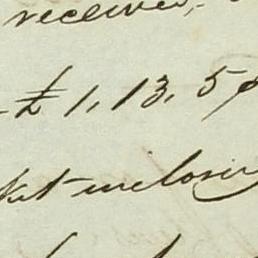 received,
£ 1, 13, 5
ket inclosing